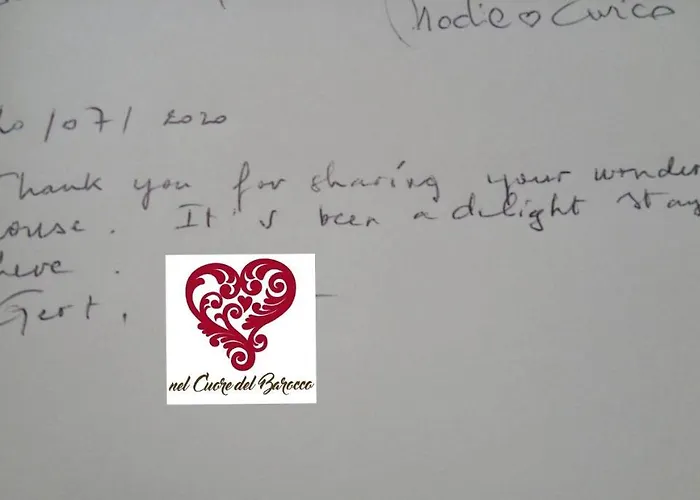 ♡ Curico
/07/ 2020
Thank you for sharing your wonder
ouse. It's been a delight stay
here.
Gert,
nel Cuore del Barocco